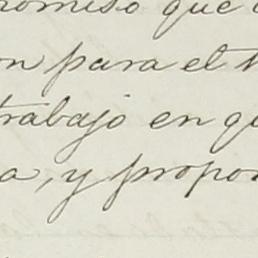 romiso que
on para el t
trabajo en qu
a, y propor